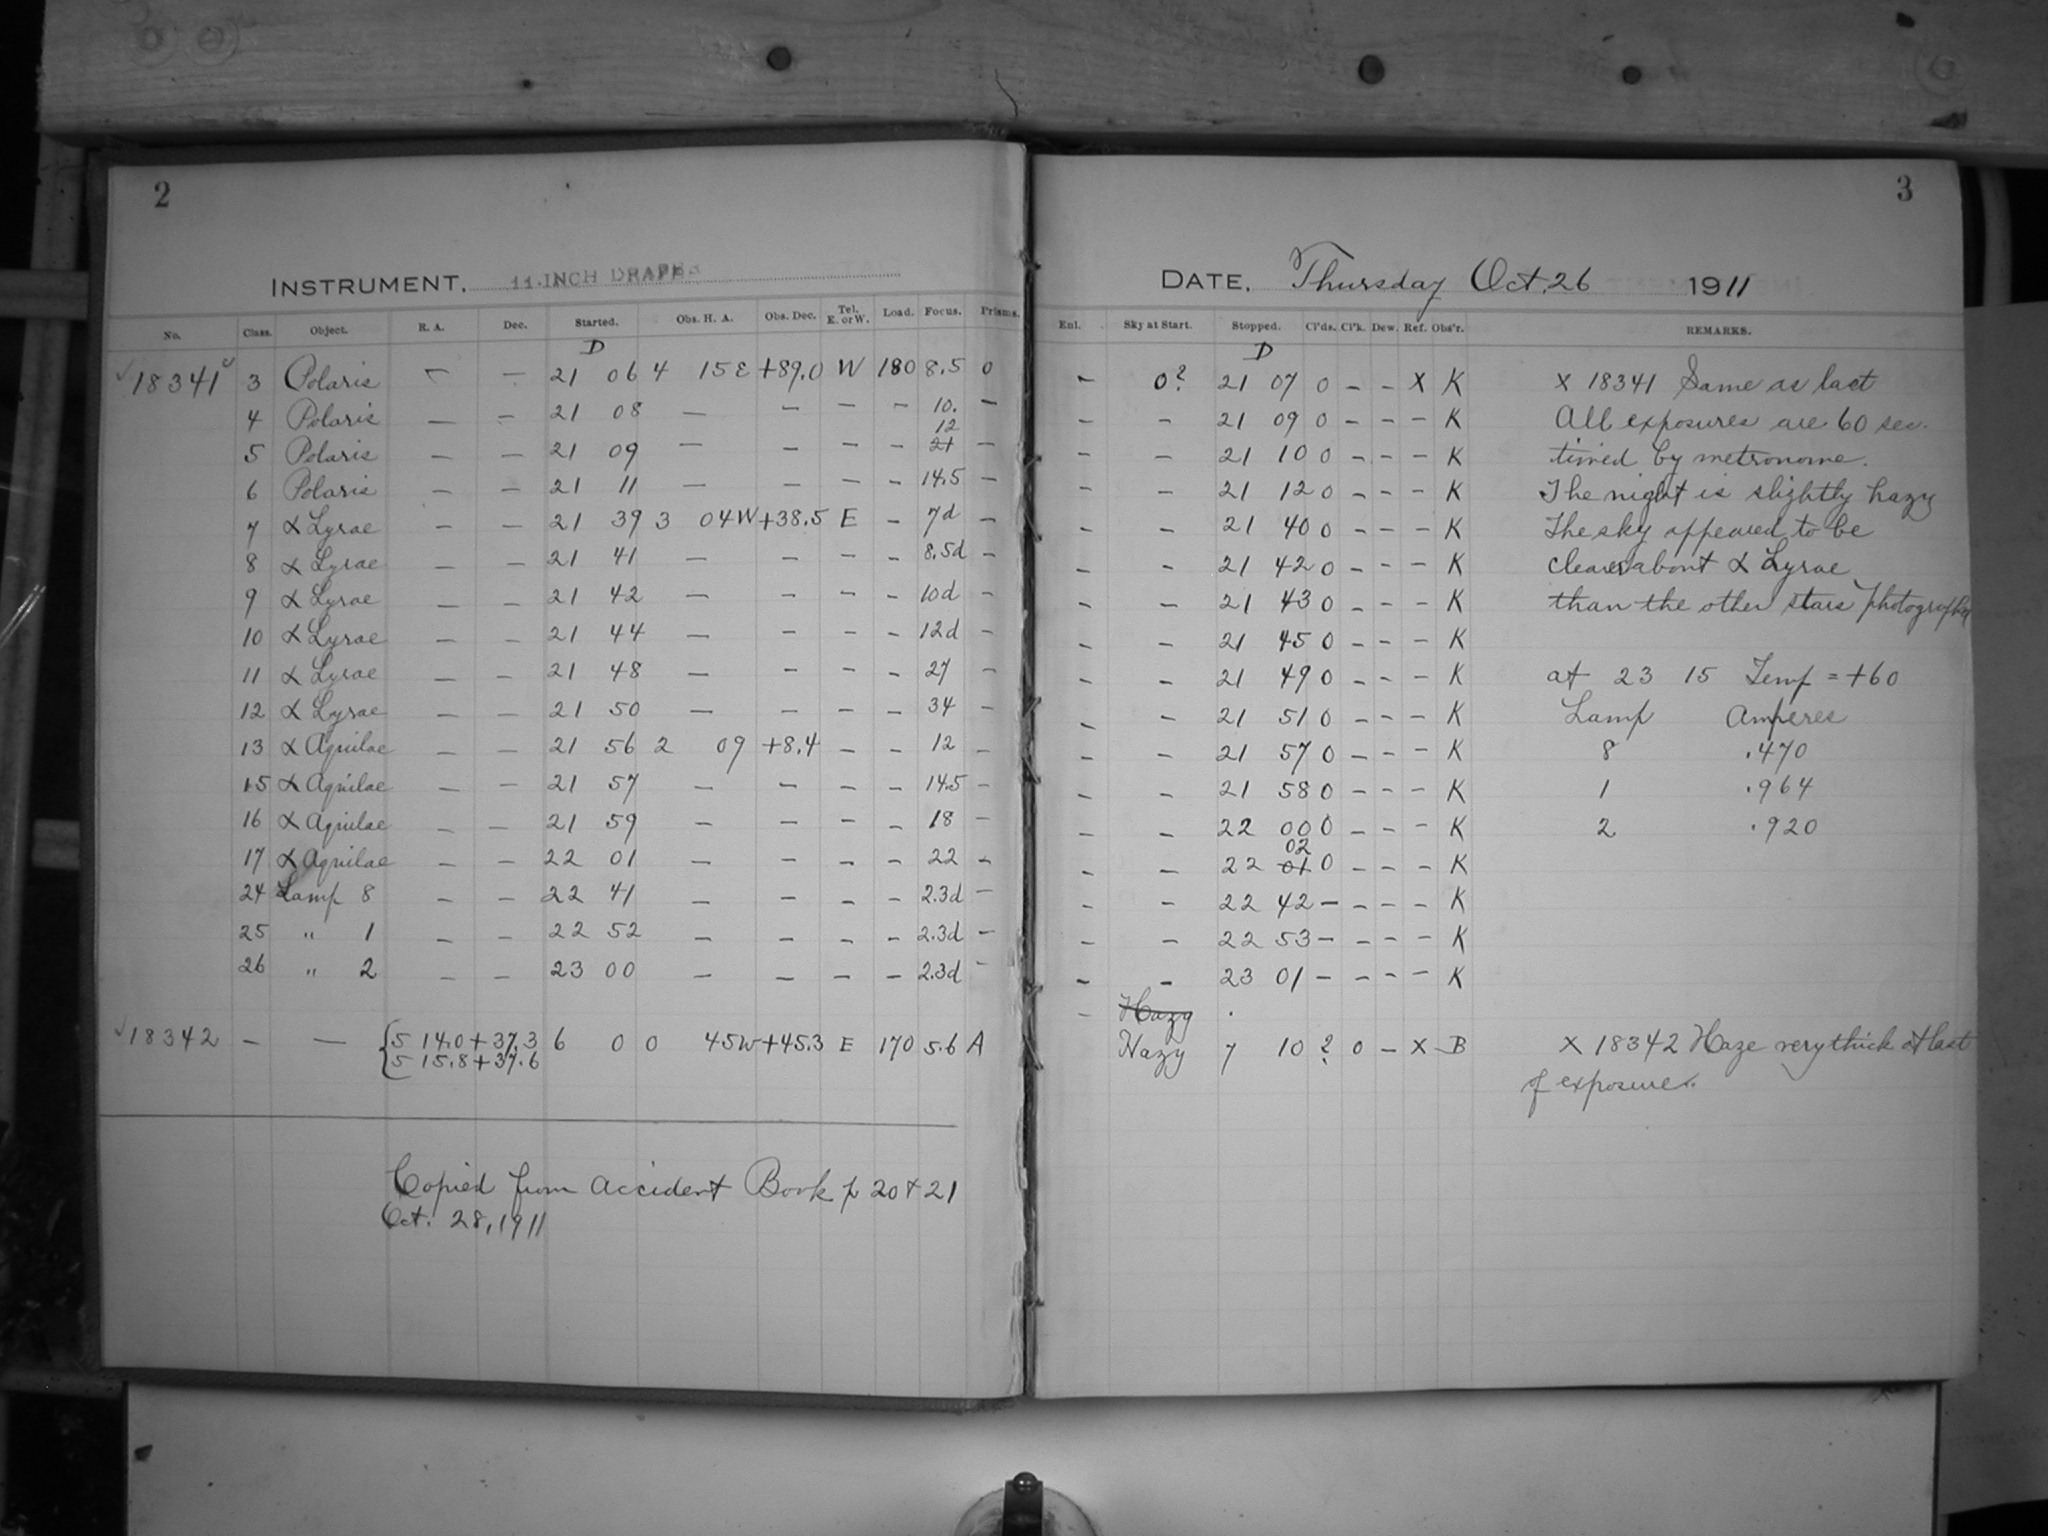 2
INSTRUMENT. 11-INCH DRAPER
No. Class. Object. R. A. Dec. Started. Obs. H. A. Obs. Dec. Tel. E. or W. Load. Focus. Prisms.
D
✓18341 3 Polaris – – 21 06 4 15 E +89.0 W 180 8.5 0
4 Polaris – – 21 08 – – – – 10. –
12
5 Polaris – – 21 09 – – – – 21 –
6 Polaris – – 21 11 – – – – 14.5 –
7 α Lyrae – – 21 39 3 04W +38.5 E – 7d –
8 α Lyrae – – 21 41 – – – – 8.5d –
9 α Lyrae – – 21 42 – – – – 10d –
10 α Lyrae – – 21 44 – – – – 12d –
11 α Lyrae – – 21 48 – – – – 27 –
12 α Lyrae – – 21 50 – – – – 34 –
13 α Aquilae – – 21 56 2 09 +8.4 – – 12 –
15 α Aquilae – – 21 57 – – – – 14.5 –
16 α Aquilae – – 21 59 – – – – 18 –
17 α Aquilae – – 22 01 – – – – 22 –
24 Lamp 8 – – 22 41 – – – – 2.3d –
25 " 1 – – 22 52 – – – – 2.3d –
26 " 2 – – 23 00 – – – – 2.3d –
✓18342 – – { 5 14.0 +37.3 6 0 0 45W +45.3 E 170 5.6 A
5 15.8 +37.6
Copied from Accident Book p 20 + 21
Oct. 28, 1911
3
DATE. Thursday Oct. 26 1911
Enl. Sky at Start. Stopped. Cl'ds. Cl'k. Dew. Ref. Obs'r. REMARKS.
D
– 0? 21 07 0 – – X K X 18341 Same as last
– – 21 09 0 – – – K All exposures are 60 sec.
– – 21 10 0 – – – K timed by metronome.
– – 21 12 0 – – – K The night is slightly hazy
– – 21 40 0 – – – K The sky appeared to be
– – 21 42 0 – – – K clearer about α Lyrae
– – 21 43 0 – – – K than the other stars photographed
– – 21 45 0 – – – K
– – 21 49 0 – – – K at 23 15 Temp = +60
– – 21 51 0 – – – K Lamp Amperes
– – 21 57 0 – – – K 8 .470
– – 21 58 0 – – – K 1 .964
– – 22 00 0 – – – K 2 .920
02
– – 22 01 0 – – – K
– – 22 42 – – – – K
– – 22 53 – – – – K
– – 23 01 – – – – K
– Hazy
Hazy 7 10 ? 0 – X B X 18342 Haze very thick at last
of exposure.